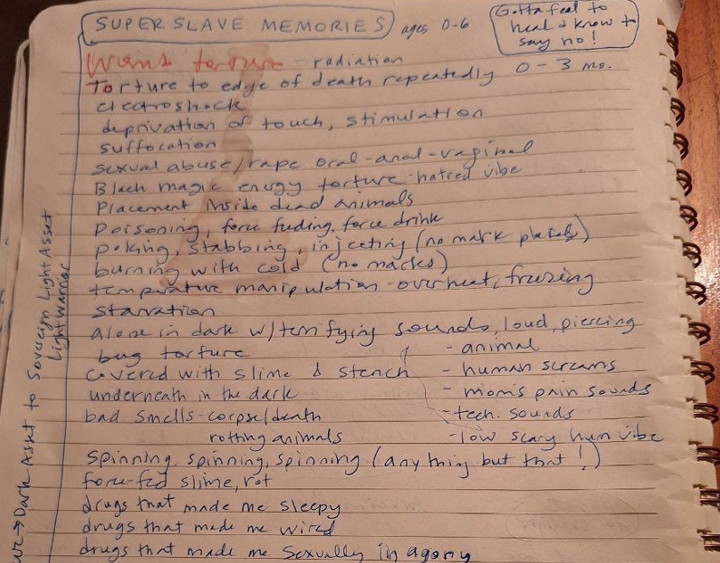 SUPER SLAVE MEMORIES ages 0-6
Gotta feel to
heal & know to
say no!
Womb torture - radiation
Torture to edge of death repeatedly 0-3 mo.
electroshock
deprivation of touch, stimulation
suffocation
sexual abuse/rape oral-anal-vaginal
Black magic energy torture-hatred vibe
Placement inside dead animals
Poisoning, force feeding, force drink
poking, stabbing, injecting (no mark places)
burning with cold (no marks)
temperature manipulation - overheat, freezing
starvation
alone in dark w/terrifying sounds, loud, piercing
bug torture - animal
covered with slime & stench - human screams
underneath in the dark - mom's pain sounds
bad smells-corpse/death - tech. sounds
rotting animals - low scary hum vibe
spinning, spinning, spinning (anything but that!)
force-fed slime, rot
drugs that made me sleepy
drugs that made me wired
drugs that made me sexually in agony
→ Dark Asset to Sovereign Light Asset
Light Warrior